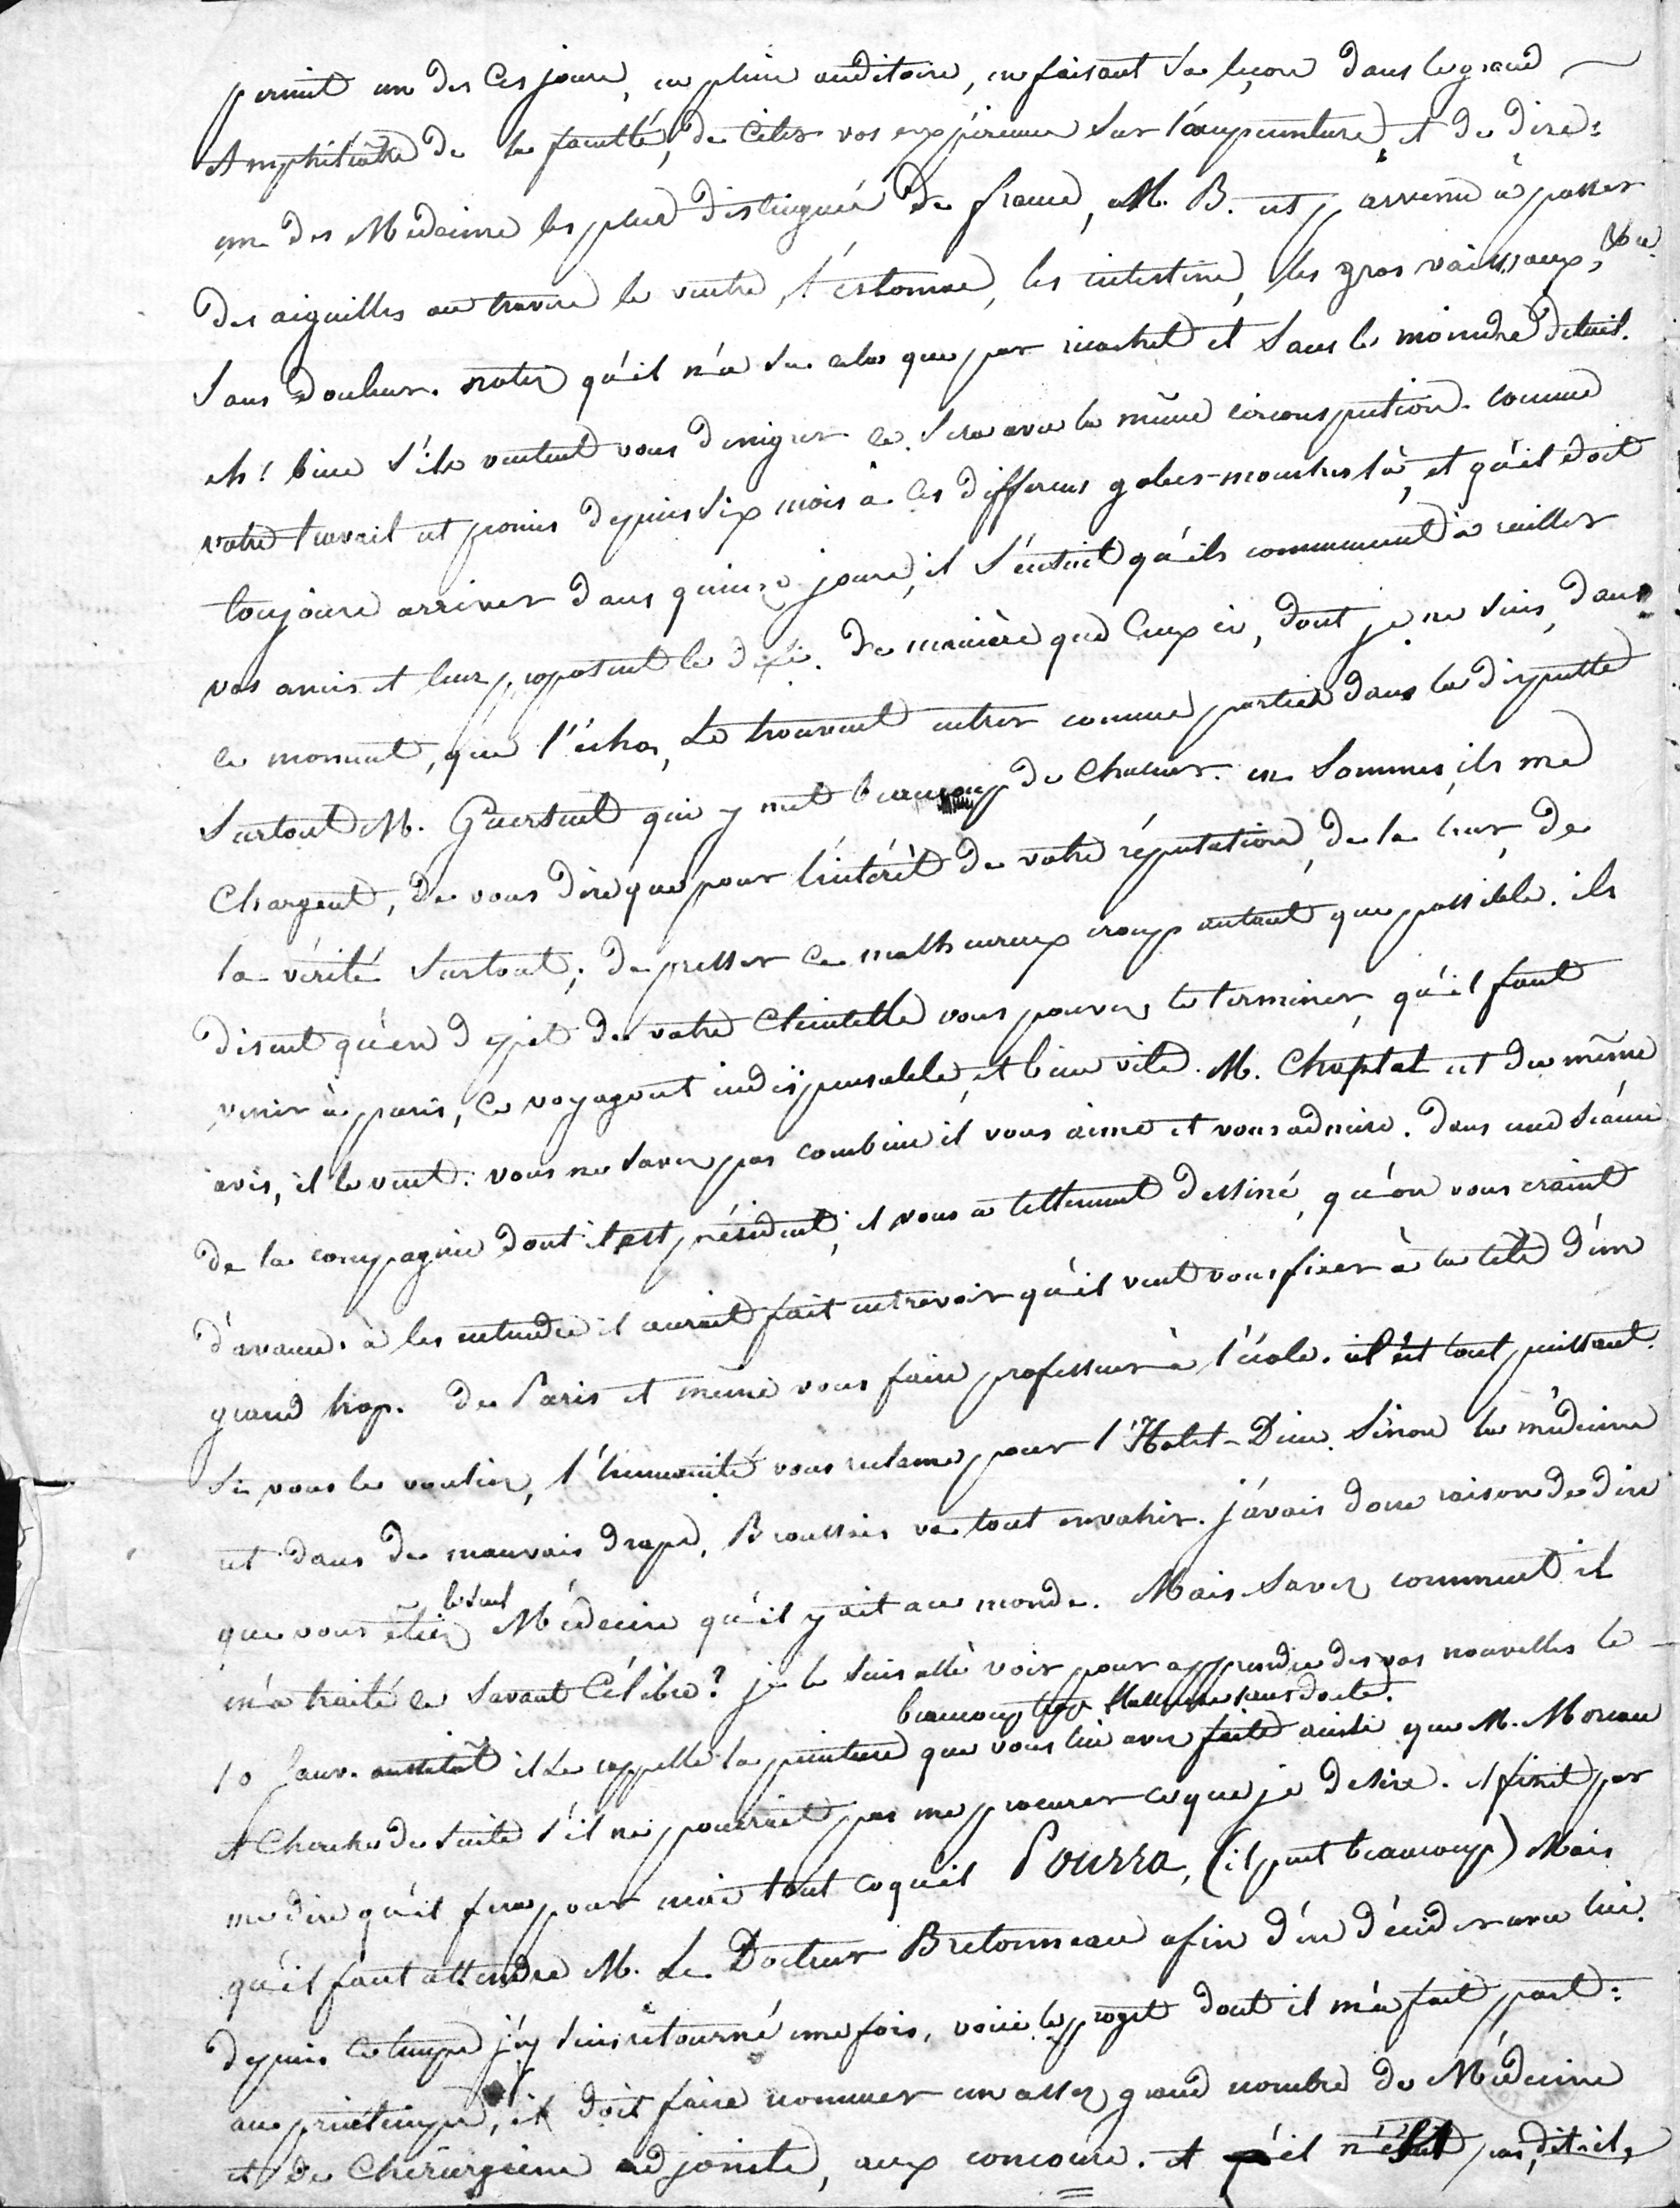 permit un des ces jours, en plein auditoire, en faisant sa leçon dans le grand
Amphiteâtre de la faculté, de citer vos expériences sur l'acupuncture, et de dire:
un des Médecins les plus distingués de france, M. B. est parvenu à passer
des aiguilles au travers le ventre, l'estomac, les intestins, les gros vaisseaux, &ce
sans douleur. notez qu'il n'a su cela que par ricochet et sans le moindre détail.
eh! bien s'ils veulent vous denigrer ce sera avec la même circonspection. comme
votre travail est promis depuis six mois à ces différens gobes-mouches là, et qu'il doit
toujours arriver dans quinze jours, il s'ensuit qu'ils commencent à railler
vos amis et leur proposent le défi. de manière que Ceux ci, dont je ne suis, dans
ce moment, que l'écho, se trouvent entrer comme parties dans la disputte
surtout M. Guersent qui y met beaucoup de chaleur. en somme, ils me
chargent, de vous dire que pour l'intérêt de votre réputation, de la leur, de
la vérité surtout; de presser ce malheureux croup autant que possible. ils
disent qu'en depit de votre clientelle vous pouvez le terminer, qu'il faut
venir à paris, ce voyage est indispensable, et bien vite. M. Chaptal est du même
avis, il le veut: vous ne savez pas combien il vous aime et vous admire. dans une séance
de la compagnie dont il est président, il vous a tellement dessiné, qu'on vous craint
d'avance. à les entendre il aurait fait entrevoir qu'il veut vous fixer à la tête d'un
grand hop. de Paris et même vous faire professeur à l'école. il est tout puissant.
Si vous le vouliez, l'humanité vous reclame pour l'Hotel-Dieu. Sinon la médecine
est dans de mauvais draps, Broussais va tout envahir. j'avais donc raison de dire
que vous étiez le seul Médecin qu'il y ait au monde. Mais savez comment il
m'a traité ce savant Célèbre? je le suis allé voir pour apprendre des vos nouvelles le
10 Janv. aussitôt il se rappelle la peinture beaucoup trop sans doute. que vous lui avez faite ainsi que M. Moreau
et cherche de suite s'il ne pourrait pas me procurer ce que je desire. il finit par
me dire qu'il fera pour moi tout ce qu'il Pourra, (il peut beaucoup) Mais
qu'il faut attendre M. Le Docteur Bretonneau afin d'en décider avec lui.
depuis ce temps j'y suis retourné une fois, voici le projet dont il m'a fait part:
au printemps, il doit faire nommer un assez grand nombre de Médecins
et de Chirurgiens adjoints, aux concours. et s'il n'était pas, dit-il,